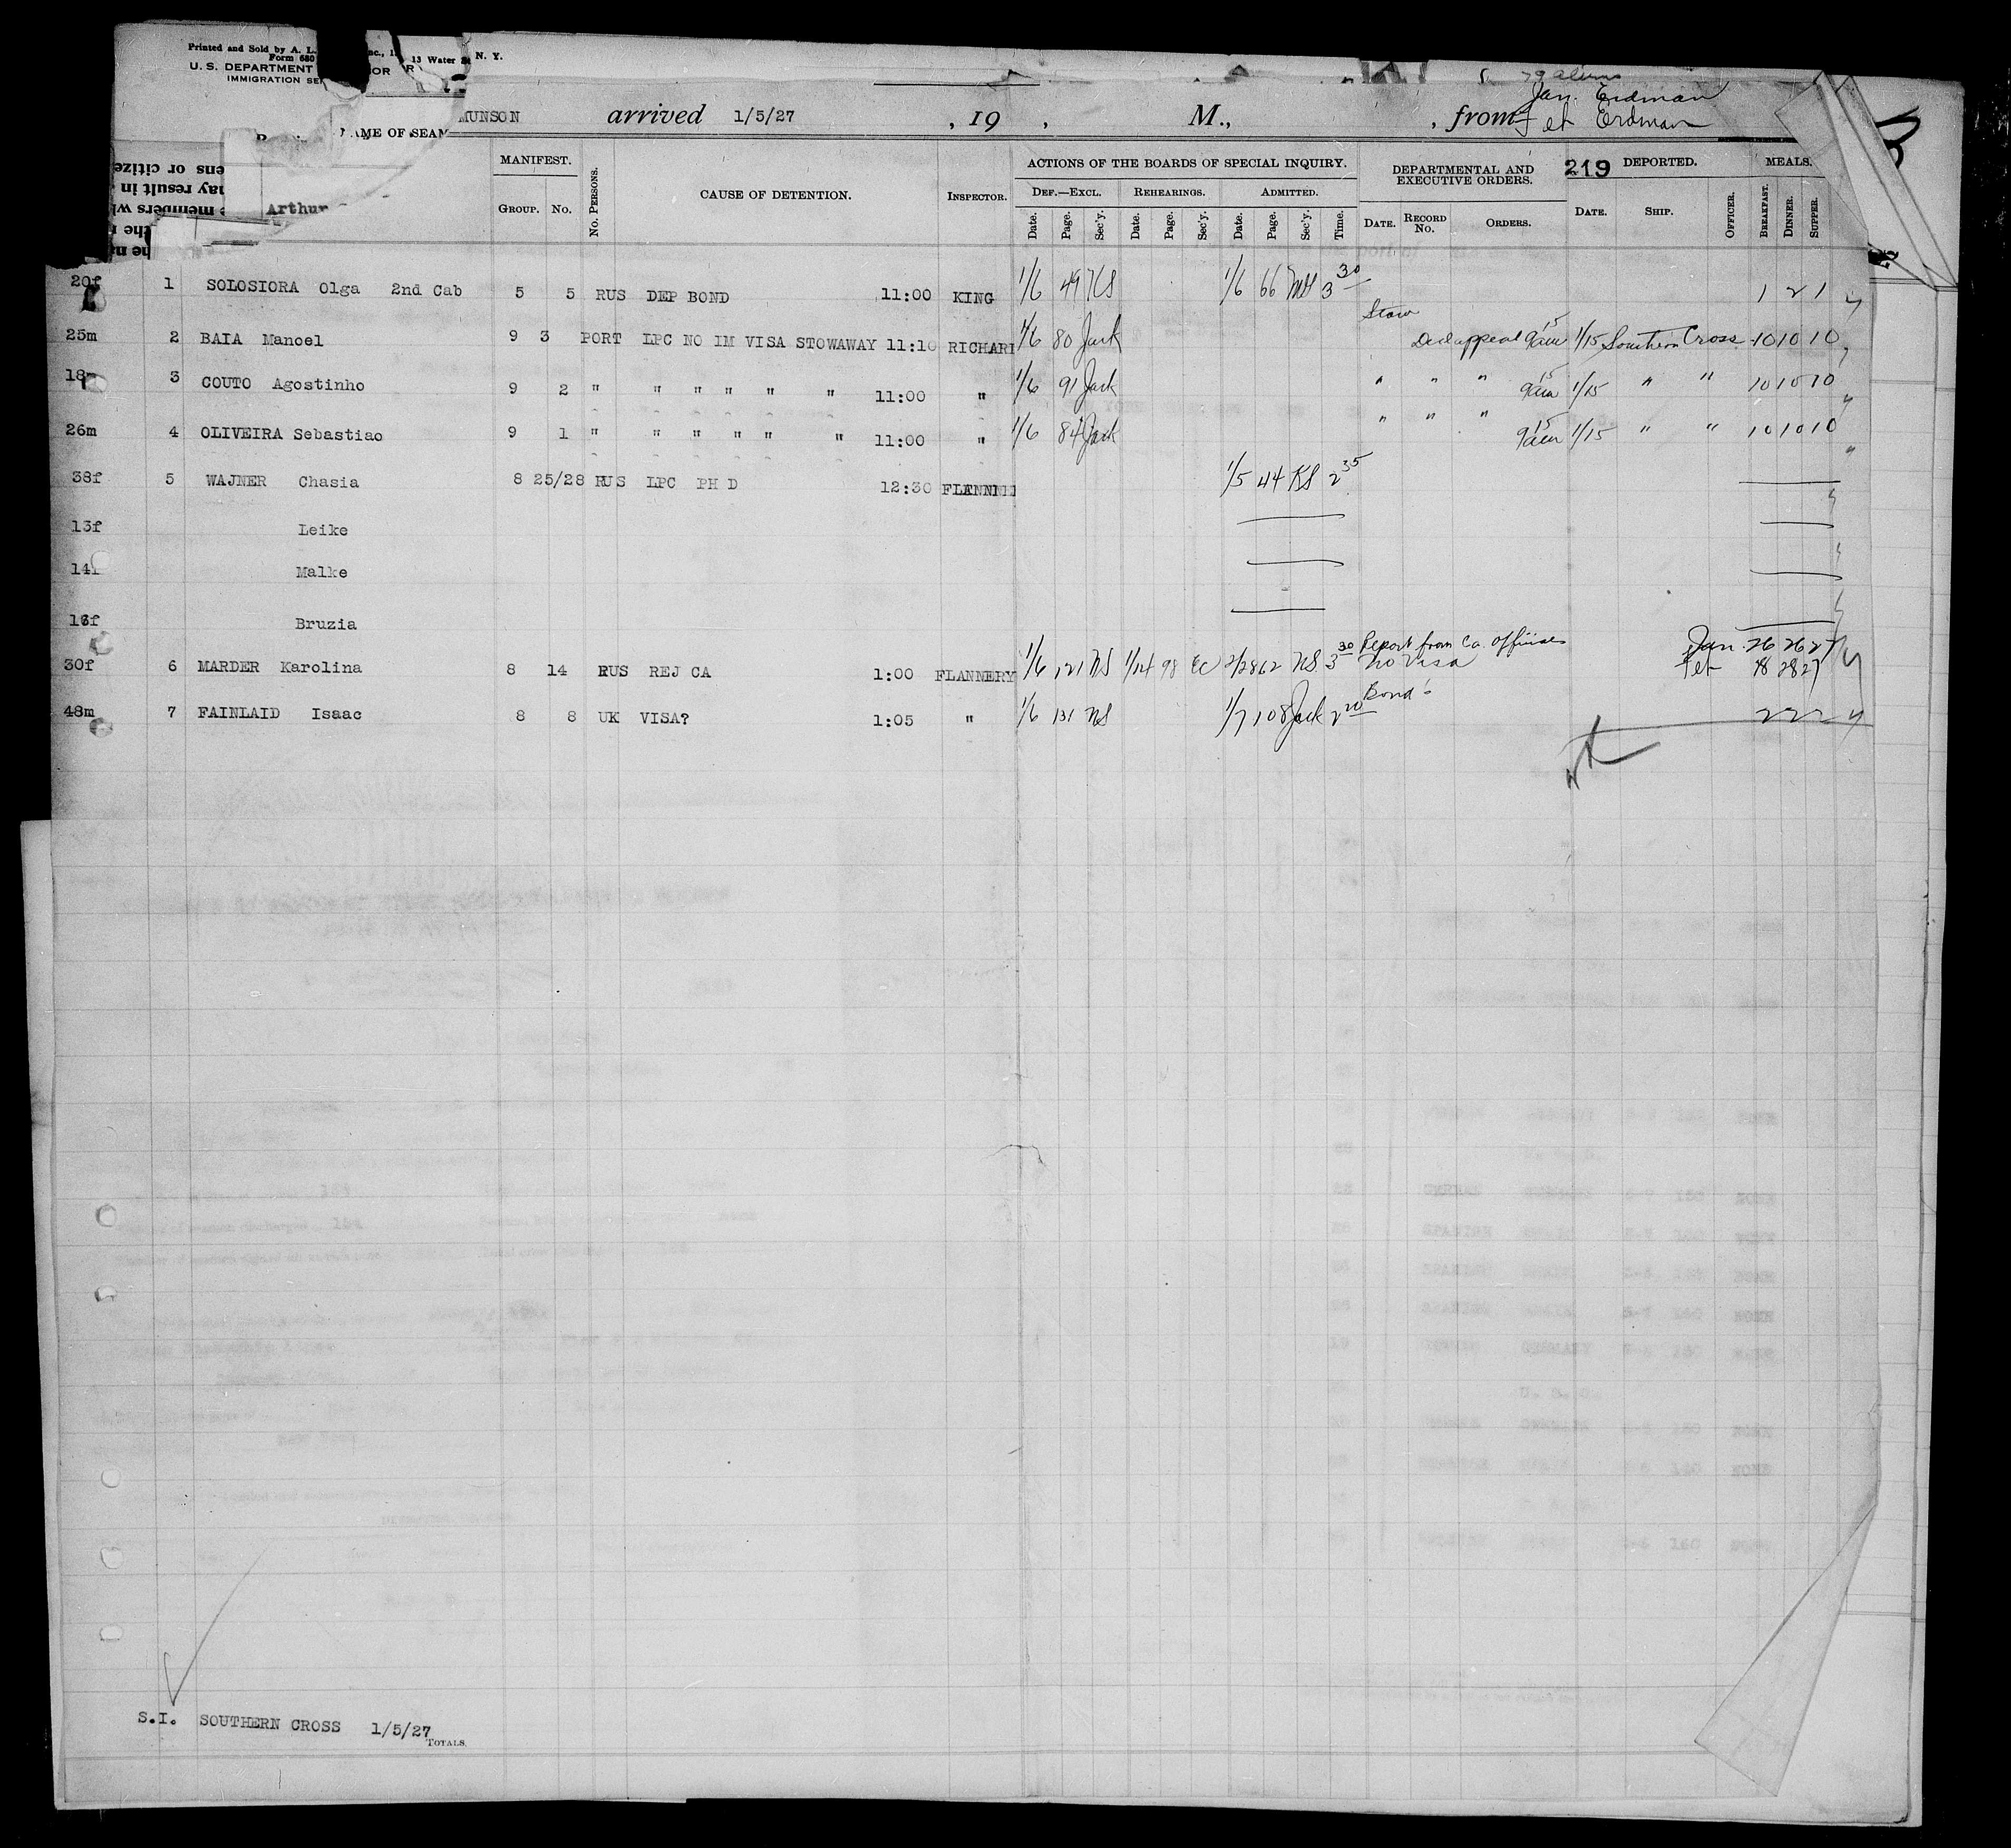 Printed and Sold by A. L. nc., 1 13 Water N. Y.
Form 680
U. S. DEPARTMENT OR
IMMIGRATION SE
Jan. Erdman
MUNSON arrived 1/5/27 , 19 , M., , from
Erdman
AME OF SEAM
ens or citize
nay result in
e members wh
the
Arthur
MANIFEST. No. PERSONS. CAUSE OF DETENTION. INSPECTOR. ACTIONS OF THE BOARDS OF SPECIAL INQUIRY. DEPARTMENTAL AND EXECUTIVE ORDERS. 219 DEPORTED. MEALS.
GROUP. No. DEF.—EXCL. REHEARINGS. ADMITTED.
Date. Page. Sec'y. Date. Page. Sec'y. Date. Page. Sec'y. Time. DATE. RECORD No. ORDERS. DATE. SHIP. OFFICER. BREAKFAST. DINNER. SUPPER.
20f 1 SOLOSIORA Olga 2nd Cab 5 5 RUS DEP BOND 11:00 KING 1/6 49 KS 1/6 66 3 30 1 2 1
Stow
25m 2 BAIA Manoel 9 3 PORT LPC NO IM VISA STOWAWAY 11:10 RICHARI 1/6 80 Jack appeal 9 15 am 1/15 Southern Cross 10 10 10
18m 3 COUTO Agostinho 9 2 " " " " " " 11:00 " 1/6 91 Jack " " " 9 15 am 1/15 " " 10 10 10
26m 4 OLIVEIRA Sebastiao 9 1 " " " " " " 11:00 " 1/6 84 Jack " " " 9 15 am 1/15 " " 10 10 10
38f 5 WAJNER Chasia 8 25/28 RUS LPC PH D 12:30 FLANNE 1/5 44 KS 2 35
13f Leike
14f Malke
Bruzia
Report from Ca. Officials
30f 6 MARDER Karolina 8 14 RUS REJ CA 1:00 FLANNERY 1/6 121 NS 1/14 98 EC 2/28 62 NS 3 30 No Visa Jan. 26 26 27
28 27
Bond
48m 7 FAINLAID Isaac 8 8 UK VISA? 1:05 " 1/6 131 NS 1/7 108 Jack 2 20 2 2 2
S.I. SOUTHERN CROSS 1/5/27
TOTALS.